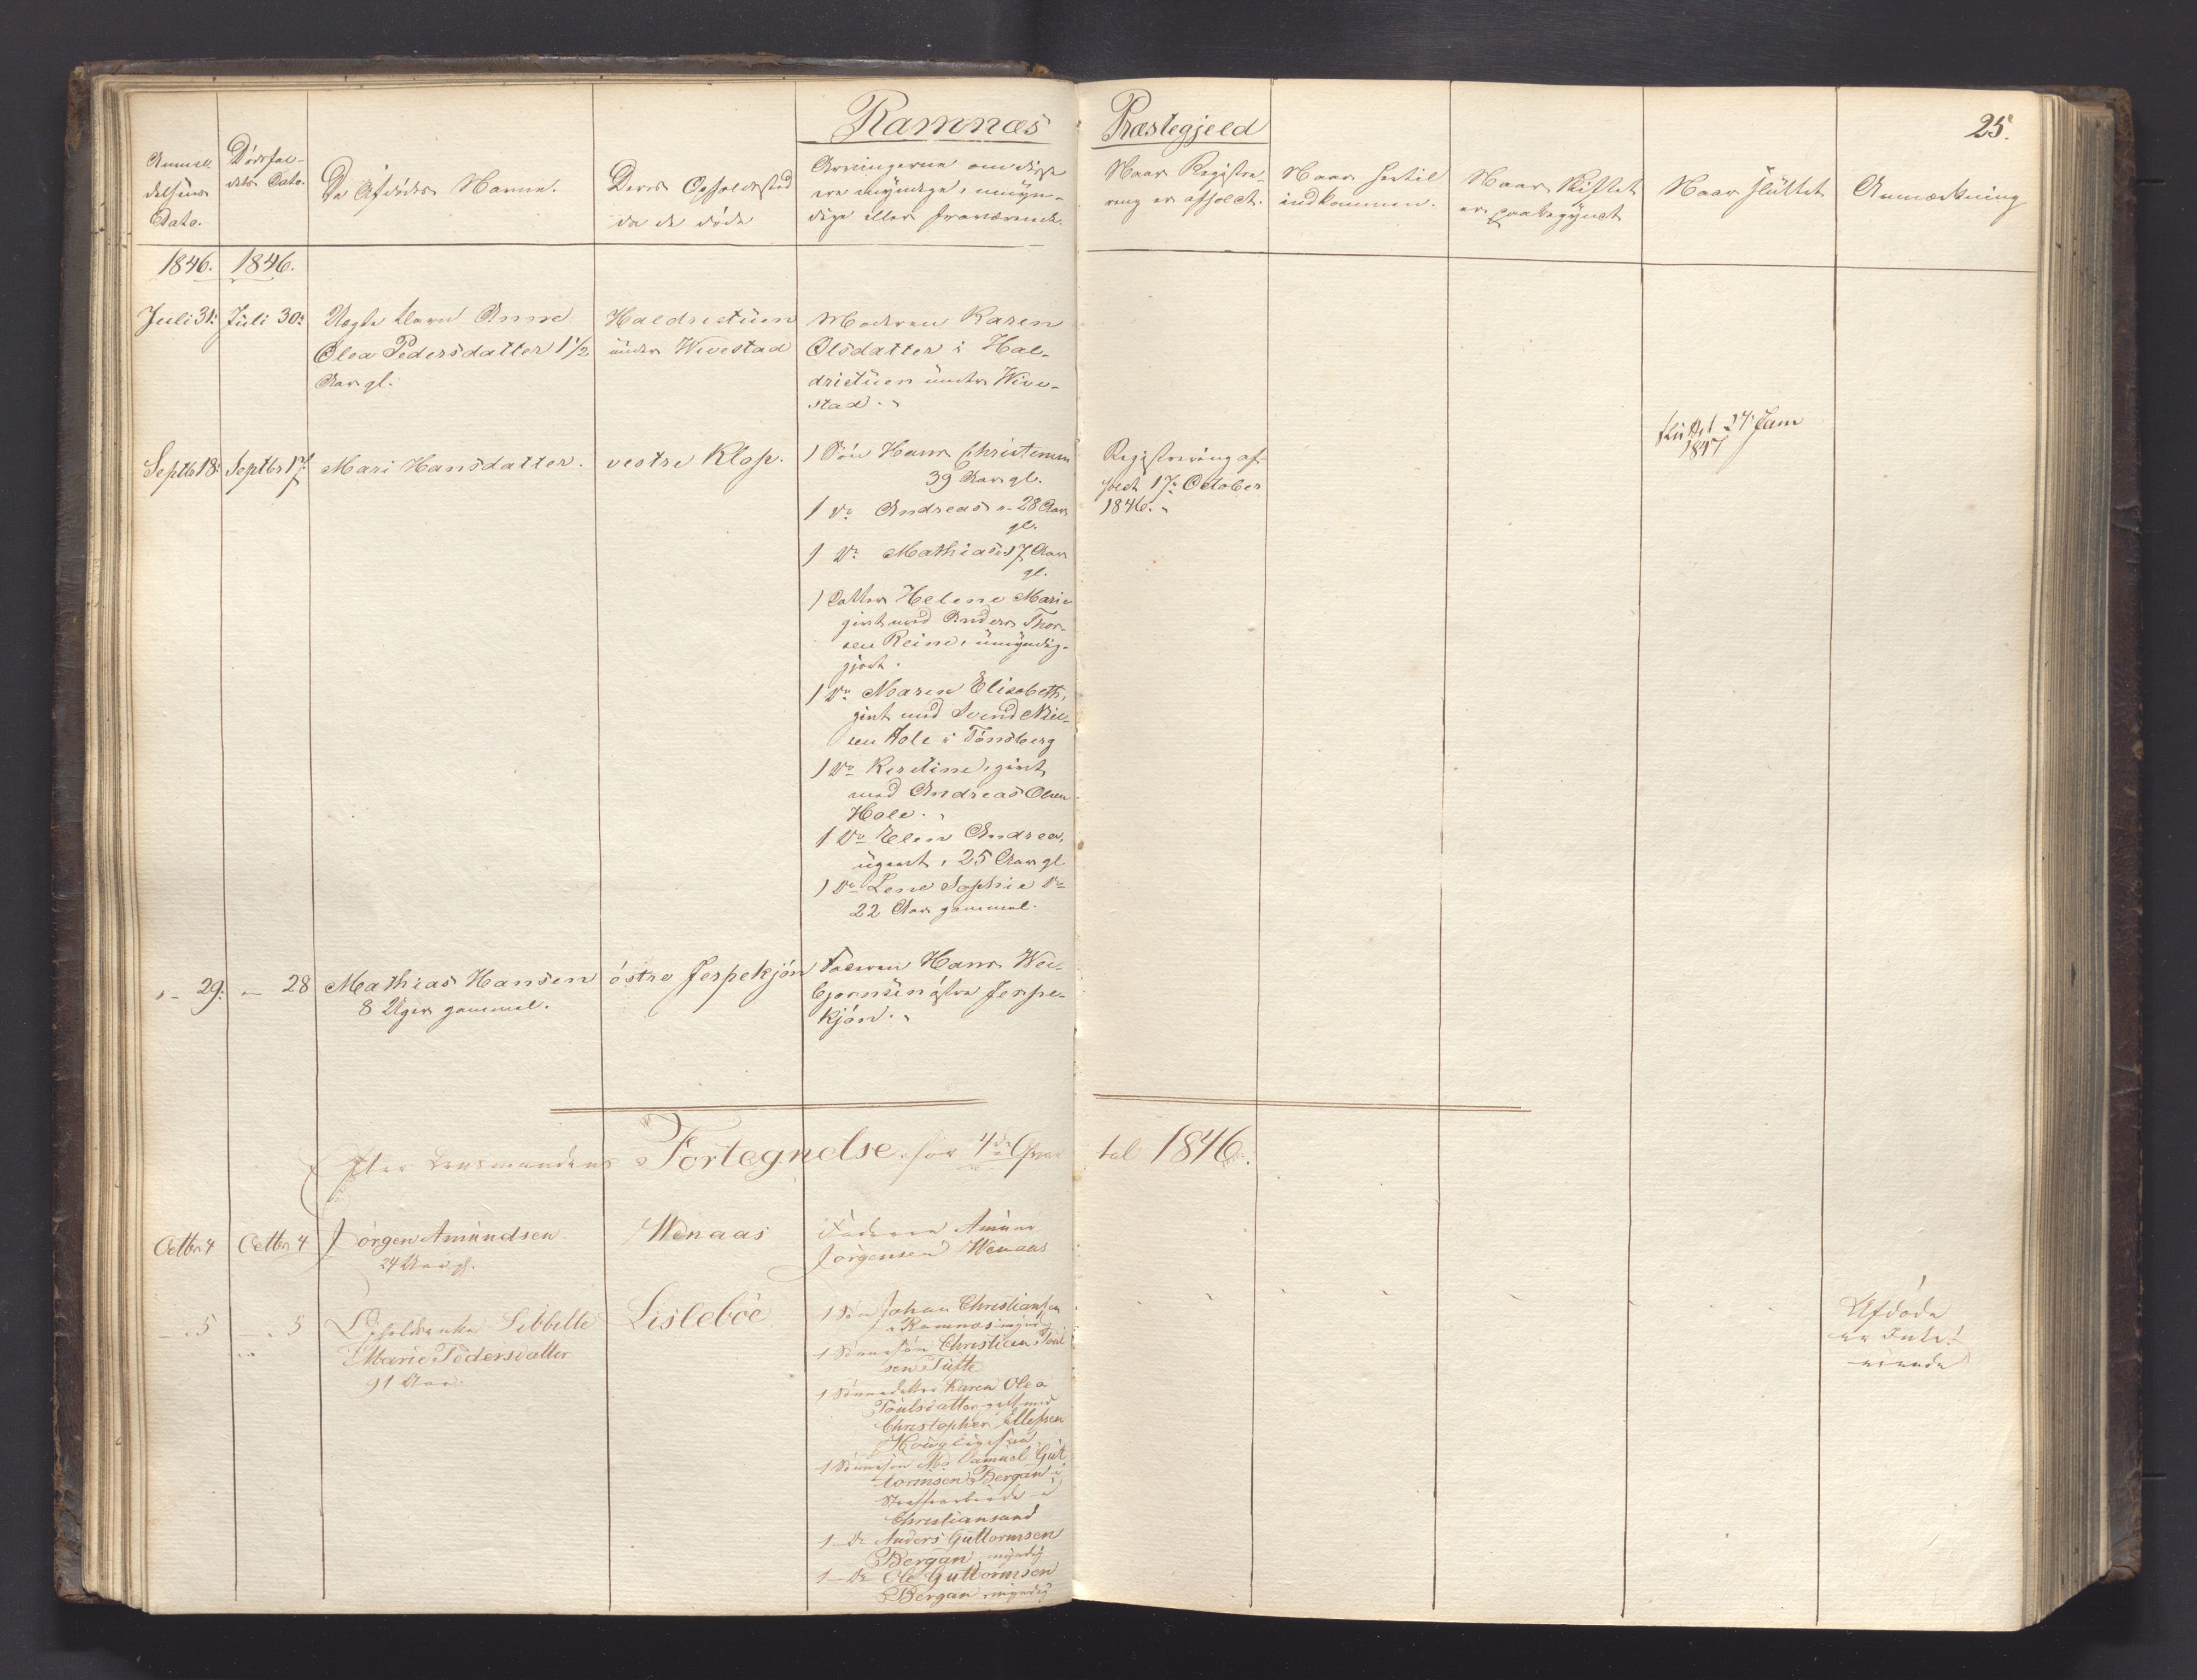 Ramnæs Præstegjeld
25.
Anmeldelsens Dato.
Dødsfaldets Dato.
De Afdødes Navne.
Deres Opholdssted
da de døde
Arvingerne om disse
ere myndige, umyn-
dige eller fraværende.
Naar Registre-
ring er afholdt.
Naar hertil
indkommen.
Naar Skiftet
er paabegyndt
Naar sluttet
Anmærkning
1846. 1846.
Juli 31: Juli 30:
Ægte Barn Anne
Olea Pedersdatter 1 1/2
Aar gl.
Haldristuen
under Wivestad
Moderen Karen
Olsdatter i Hal-
dristuen under Wive-
stad.
Septb 18: Septbr 17:
Mari Hansdatter.
vestre Klop.
1 Søn Hans Christensen
39 Aar gl.
1 do Andreas 28 Aar
gl.
1 do Mathias 17 Aar
gl.
1 Datter Helene Marie
gift med Anders Thor-
sen Reine, umyndig-
gjort.
1 do Maren Elisabeth,
gift med Svend Niel-
sen Hole i Tønsberg
1 do Kirstine, gift
med Andreas Olsen
Hole.
1 do Elen Andrea,
ugivt, 25 Aar gl
1 do Lene Sophie do
22 Aar gammel.
Registrering af-
holdt 17: October
1846.
sluttet 24 Janr
1847
- 29: - 28
Mathias Hansen
8 Uger gammel.
østre Jerpekjøn
Faderen Hans
østre Jerpe-
kjøn.
Efter Lensmandens Fortegnelse for 4de Qvartal 1846.
Octbr 4 Octbr 4
Jørgen Amundsen
24 Aar gl.
Wenaas
Faderen Amund
Jørgensen Wenaas
- 5 - 5
Sibbille
Marie Pedersdatter
91 Aar.
Lisleböe
1 Søn Johan Christiansen
Ramnæs myndig
1 Sønnesøn Christian Poul
sen Tufte
1 Sønnedatter Karen Olea
Poulsdatter gift med
Christopher Ellefsen
1 Sønnesøn No Samuel Gut
tormsen Bergan i
Strafarbeide i
Christiansand
1 Do Anders Guttormsen
Bergan, myndig
1 Do Ole Guttormsen
Bergan myndig
Afdøde
er Intet
eiende